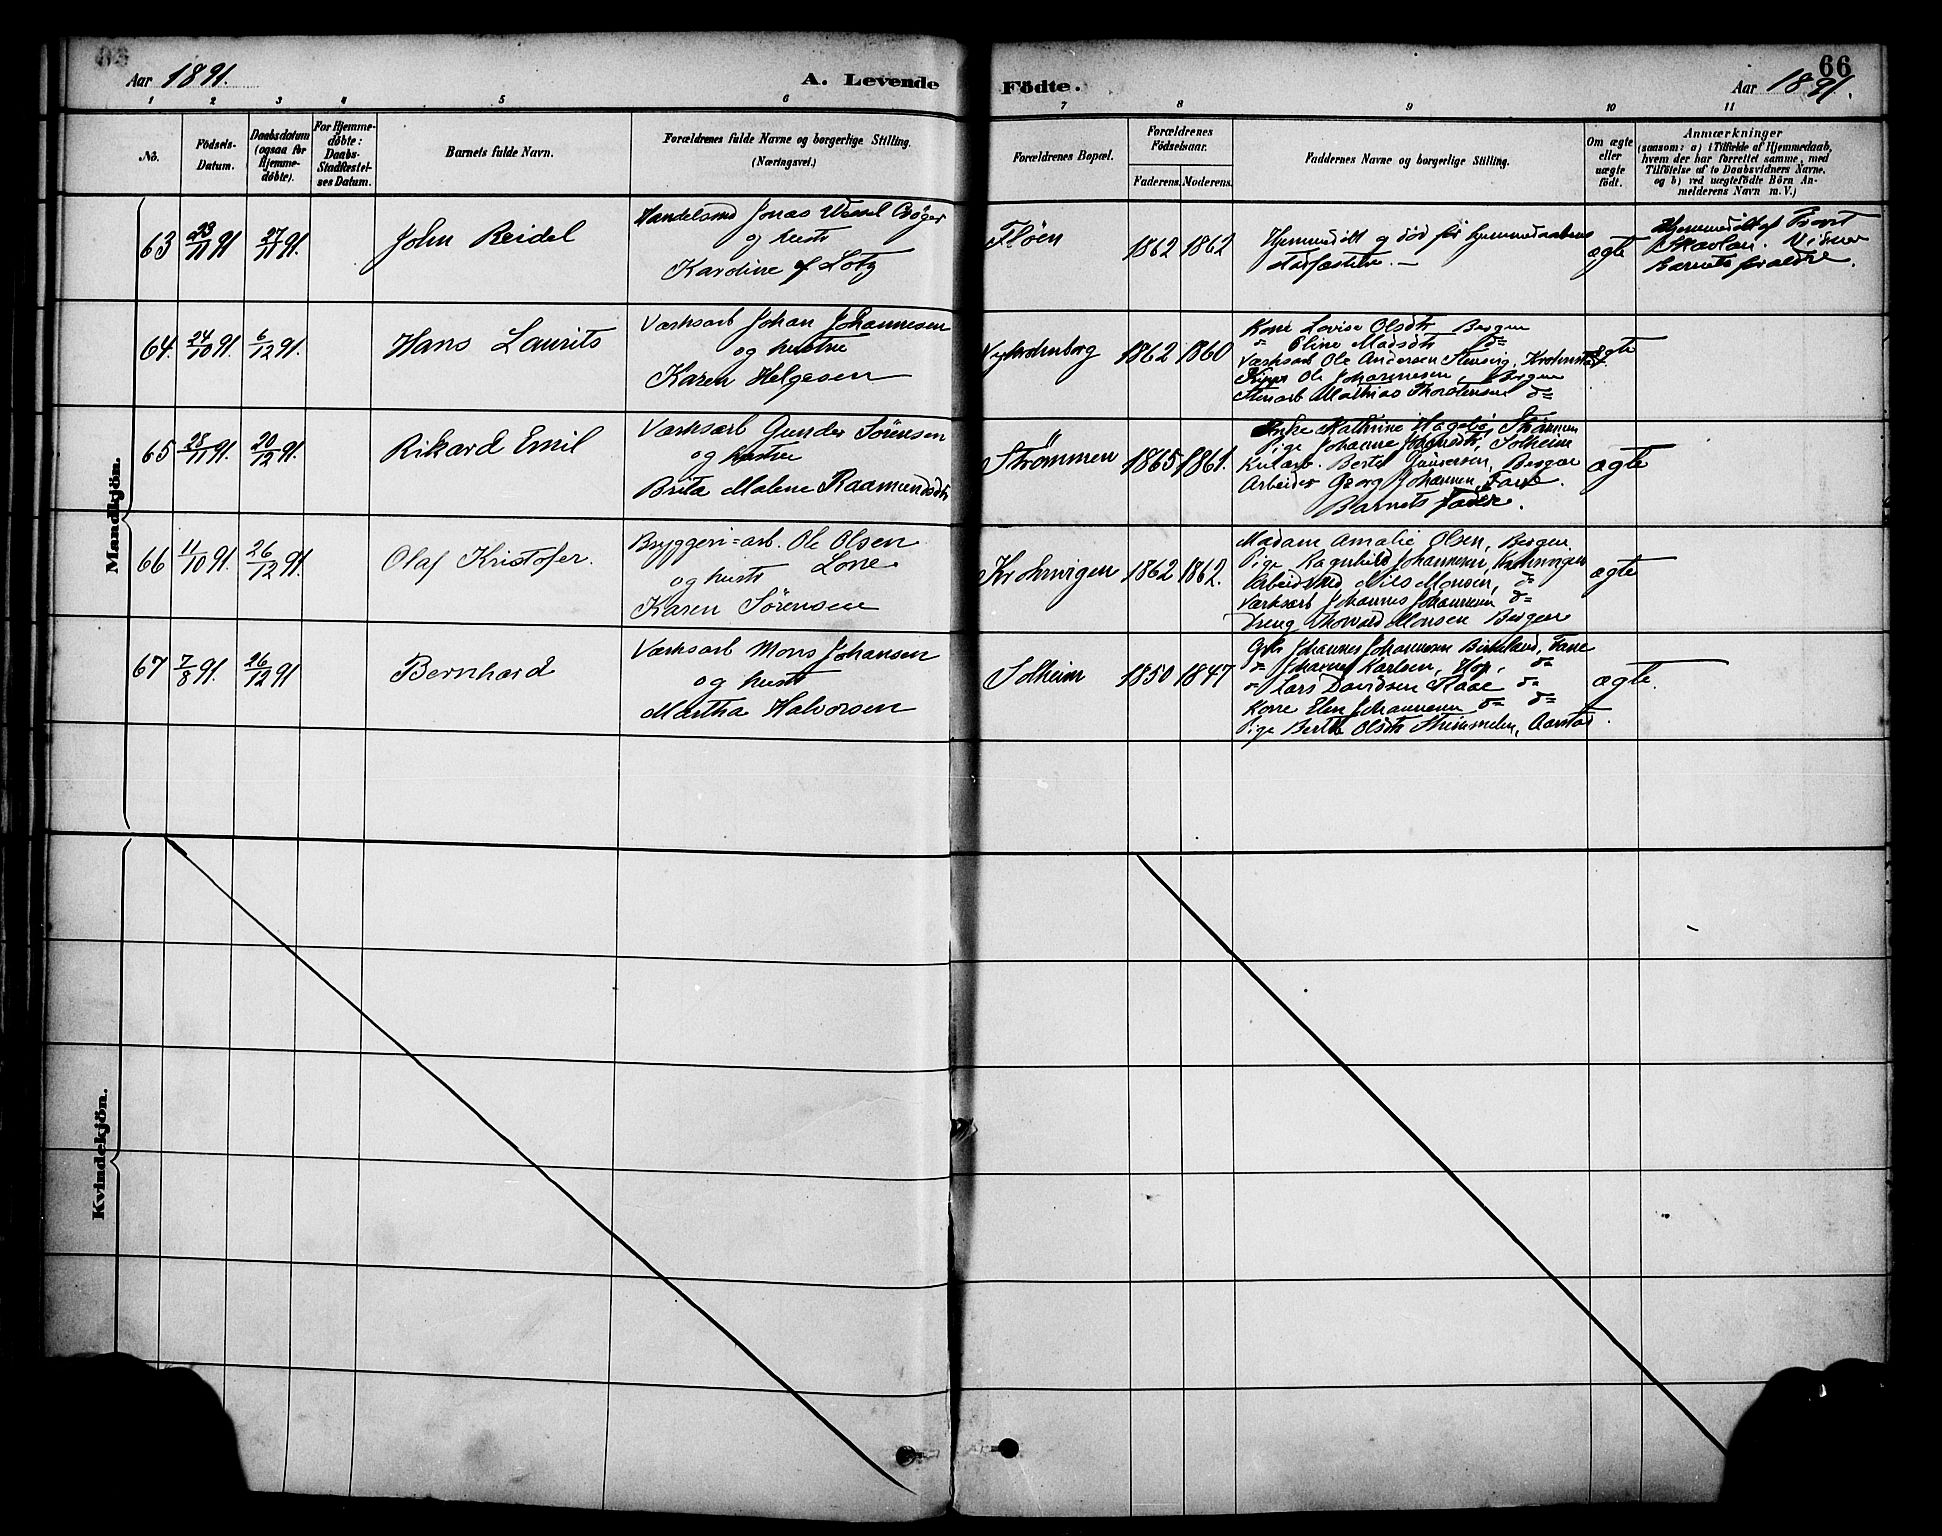 Aar 1891.
A. Levende
1 2 3 4 5 6
No.
Födsels-
Datum.
Daabsdatum
(ogsaa for
Hjemme-
döbte).
For Hjemme-
döbte:
Daabs-
Stadfæstel-
ses Datum.
Barnets fulde Navn.
Forældrenes fulde Navne og borgerlige Stilling.
(Næringsvei.)
Födte.
66
Aar 1891.
7 8 9 10 11
Forældrenes Bopæl.
Forældrenes
Födselsaar.
Faderens. Moderens.
Faddernes Navne og borgerlige Stilling.
Om ægte
eller
uægte
födt.
Anmærkninger
(saasom: a) i Tilfælde af Hjemmedaab,
hvem der har forrettet samme, med
Tilföielse af to Daabsvidners Navne,
og b) ved uægtefödte Börn An-
melderens Navn m. V.)
Mandkjön.
63 23/11 91 27/11 91. John Reidel
Handelsmd Jonas Wessel
og hustr
Karoline f Lotz
Flöen 1862 1862
Hjemmedöbt og död för hjemmedaabens
stadfæstelse. —
ægte
Hjemmedöbt af Provst
Skavlan. Vidner
Barnets forældre.
64. 24/10 91. 6/12 91. Hans Laurits
Værksarb Johan Johannesen
og hustrue
Karen Helgesen
Nykrohnborg 1862 1860
Kone Lovise Olsdtr Bergen
" Eline Madsdtr do
Værksarb Ole Andersen Krohnstad
Ole Johannesen, Bergen
Stenarb Mathias Thorstensen do
ægte
65 28/11 91. 20/12 91. Rikard Emil
Værksarb Gunder Sörensen
og hustrue
Brita Malene Raamundsdtr
Strömmen 1865 1861.
Enke Kathrine Strömmen
Pige Johanne Solheim
Bertel Bergen
Arbeider Georg Johannesen, Fane.
Barnets Fader.
ægte
66 11/10 91. 26/12 91. Olaf Kristofer.
Bryggeri=arb. Ole Olsen
og hustr Lone
Karen Sörensen
Krohnvigen 1862 1862.
Madam Amalie Olsen, Bergen
Pige Ragnhild Johannesen, Krohnvigen
Arbeidsmd Nils Monsen, do
Værksarb Johannes Johannesen do
Dreng Thorvald Monsen Bergen
ægte
67 7/8 91. 26/12 91 Bernhard
Værksarb Mons Johansen
og hustr
Martha Halvorsen
Solheim 1850 1847
Gbr Johannes Johannesen Birkeland, Fane
do Johannes Karlsen, Hop, do
do Lars Davidsen do
Kone Elen Johannesen do do
Pige Berthe Olsdtr Aarstad.
ægte.
Kvindekjön.